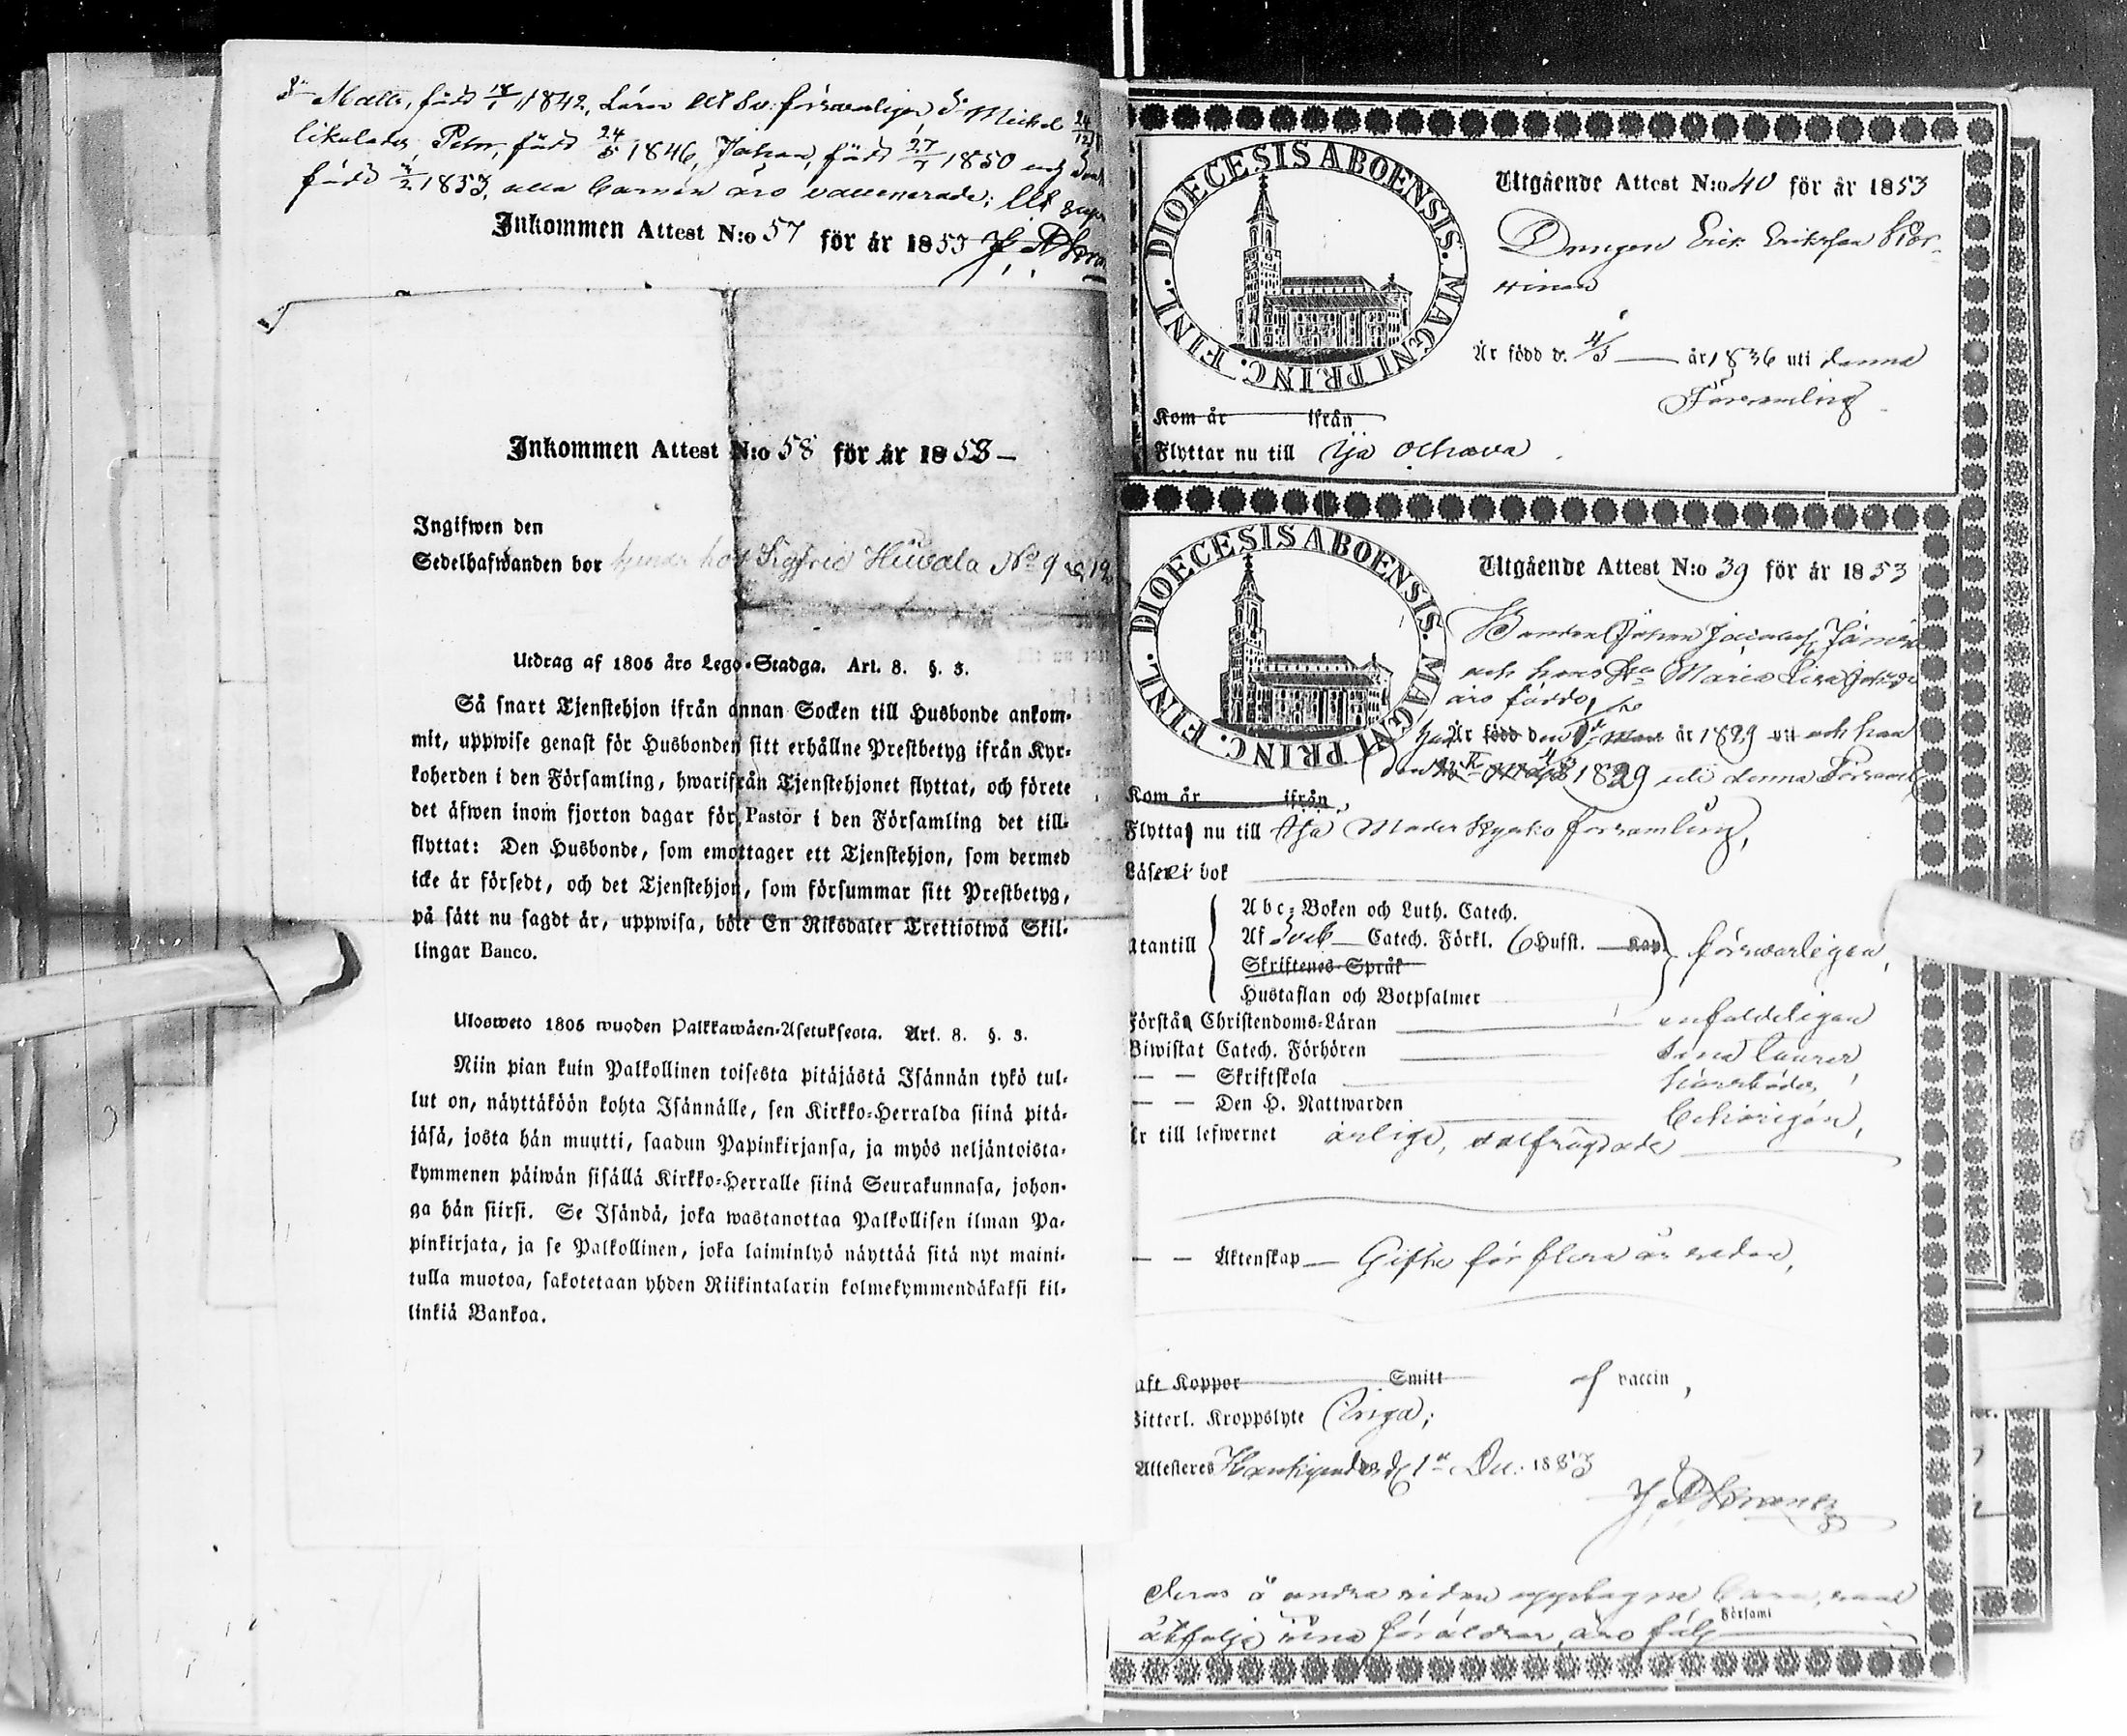 Matts, född 18/1 1842, Läser Abc Bo: försvarligen, Sn Michel 24/12
likaledes, Petter, född 24/5 1846, Johan, född 27/7 1850 och
född 4/2 1853, alla barnen äro vaccinerade;
Inkommen Attest N:o 57 för år 1853
Inkommen Attest N:o 58 för år 1853
Ingifwen den
Sedelhafwanden bor hos Sigfrid Hiivala No 9
Utdrag af 1805 års Lego-Stadga. Art. 8. §. 3.
Så snart Tjenstehjon ifrån annan Socken till Husbonde ankom-
mit, uppwise genast för Husbonden sitt erhållne Prestbetyg ifrån Kyr-
koherden i den Församling, hwarifrån Tjenstehjonet flyttat, och förete
det äfwen inom fjorton dagar för Pastor i den Församling det till-
flyttat: Den Husbonde, som emottager ett Tjenstehjon, som dermed
icke är försedt, och det Tjenstehjon, som försummar sitt Prestbetyg,
på sätt nu sagdt är, uppwisa, böte En Riksdaler Trettiotwå Skil-
lingar Banco.
Ulosweto 1805 wuoden Palkkawäen-Asetuksesta. Art. 8. §. 3.
Niin pian kuin Palkollinen toisesta pitäjästä Isännän tykö tul-
lut on, näyttäköön kohta Isännälle, sen Kirkko-Herralda siinä pitä-
jäsä, josta hän muutti, saadun Papinkirjansa, ja myös neljäntoista-
kymmenen päiwän sisällä Kirkko-Herralle siinä Seurakunnasa, johon-
ga hän siirsi. Se Isändä, joka wastanottaa Palkollisen ilman Pa-
pinkirjata, ja se Palkollinen, joka laiminlyö näyttää sitä nyt maini-
tulla muotoa, sakotetaan yhden Riikintalarin kolmekymmendäkaksi kil-
linkiä Bankoa.
DIOECESIS ABOENSIS. MAGNI PRINC. FINL.
Utgående Attest N:o 40 för år 1853
Drengen Erik Eriksson
Är född d. 4/5 år 1836 uti denna
Församling
Kom år ifrån
Flyttar nu till
DIOECESIS ABOENSIS. MAGNI PRINC. FINL.
Utgående Attest N:o 39 för år 1853
Bonden Johan Jacobss
och hans Hu Maria Lisa
äro födde,
Är född den år 1829 uti och han
1829 uti denna Församl
Kom år ifrån,
Flytta nu till Moder Kyrko församling,
Läser i bok
Abc-Boken och Luth. Catech.
Utantill Af Sveb Catech. Förkl. 6 Hufst. Kap. försvarligen,
Skriftenes-Språk
Hustaflan och Botpsalmer
Förstå Christendoms-Läran enfaldeligen
Biwistat Catech. Förhören sina
— — Skriftskola
— — Den H. Nattwarden behörigen,
Är till lefwernet ärlige, välfrägdade
— — Äktenskap Gifte för flera år sedan,
aft Koppor Smitt af vaccin,
Bitterl. Kroppslyte Inga;
Attesteres d 1st Dec. 1853
Deras å andra sidan upptagne barn, som
åtfölja sina föräldrar, äro följ
Församl